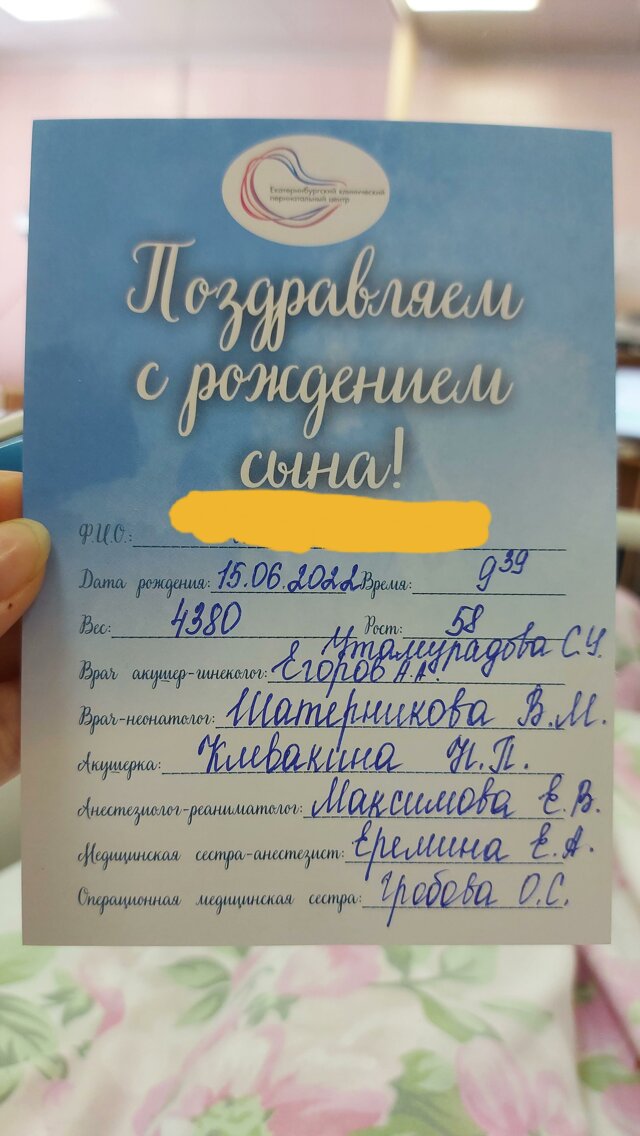 Екатеринбургский клинический
перинатальный центр
Поздравляем
с рождением
сына!
Ф.И.О.:
Дата рождения: 15.06.2022 Время: 9 39
Вес: 4380 Рост: 58
Утамурадова С.У.
Врач акушер-гинеколог: Егоров А.А.
Врач-неонатолог: Шатерникова В.М.
Акушерка: Клевакина Н.П.
Анестезиолог-реаниматолог: Максимова Е.В.
Медицинская сестра-анестезист: Еремина Е.А.
Операционная медицинская сестра: Гробова О.С.